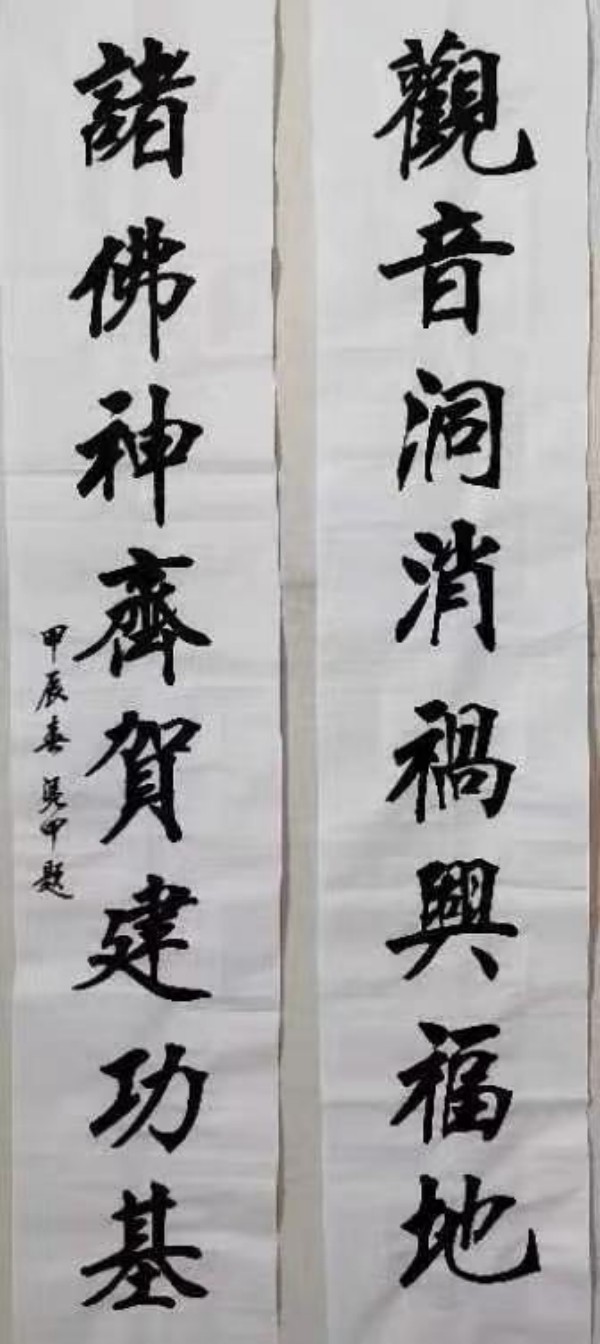 觀音洞消禍興福地
諸佛神齊賀建功基
甲辰春吳中題